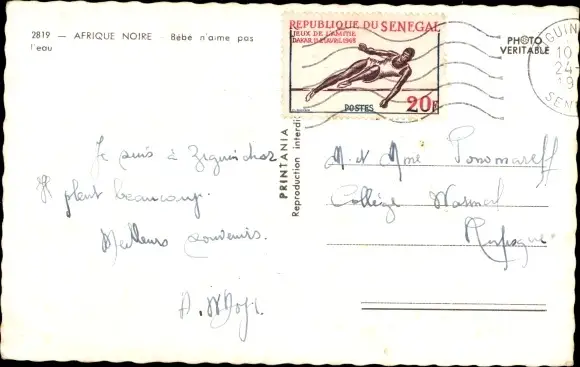 2819 — AFRIQUE NOIRE - Bébé n'aime pas
l'eau
REPUBLIQUE DU SENEGAL
JEUX DE L'AMITIE
DAKAR 11-21 AVRIL 1963
POSTES
20F
PHOTO
VERITABLE
10
24-
19
SEN
PRINTANIA
Reproduction interdi
Je suis à Ziguinchor
Il pleut beaucoup.
Meilleurs souvenirs.
M. et Mme Ponomareff
Collège
Rufisque